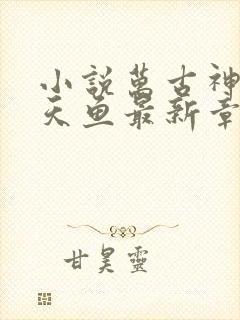 小說萬古神
天魚最新章
甘昊靈